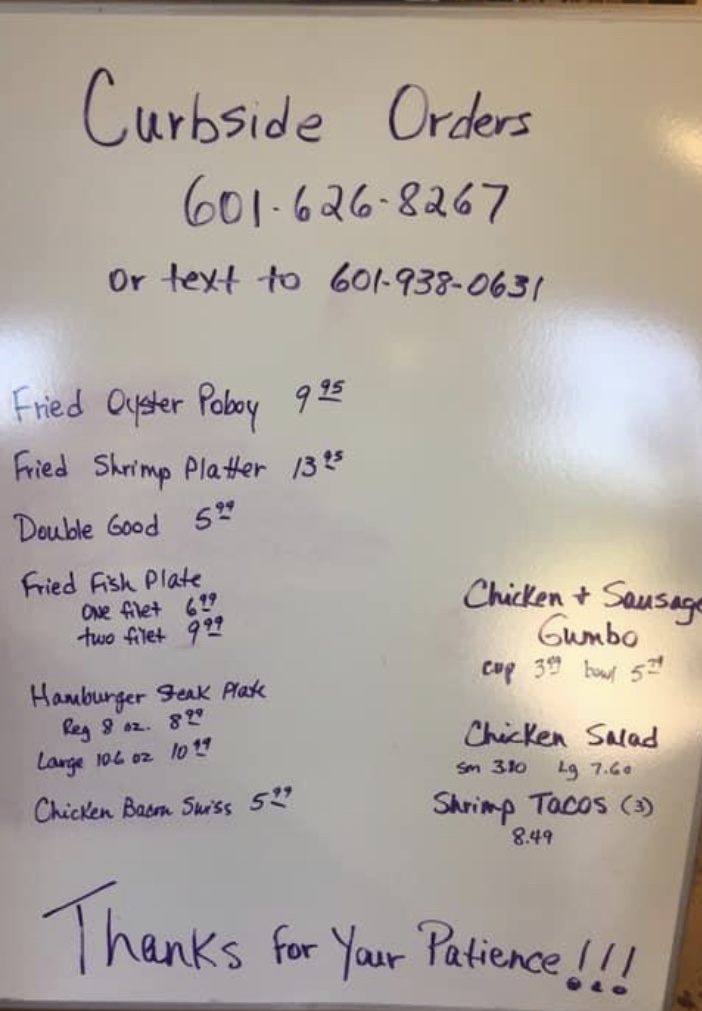 Curbside Orders
601-626-8267
or text to 601-938-0631
Fried Oyster Poboy 9 95
Fried Shrimp Platter 13 95
Double Good 5 99
Fried Fish Plate
one filet 6 99
two filet 9 99
Hamburger Steak Plate
Reg 8 oz. 8 99
Large 10.6 oz 10 99
Chicken Bacon Swiss 5 99
Chicken + Sausage
Gumbo
cup 3 99 bowl 5 99
Chicken Salad
Sm 3.80 Lg 7.60
Shrimp Tacos (3)
8.49
Thanks for Your Patience!!!